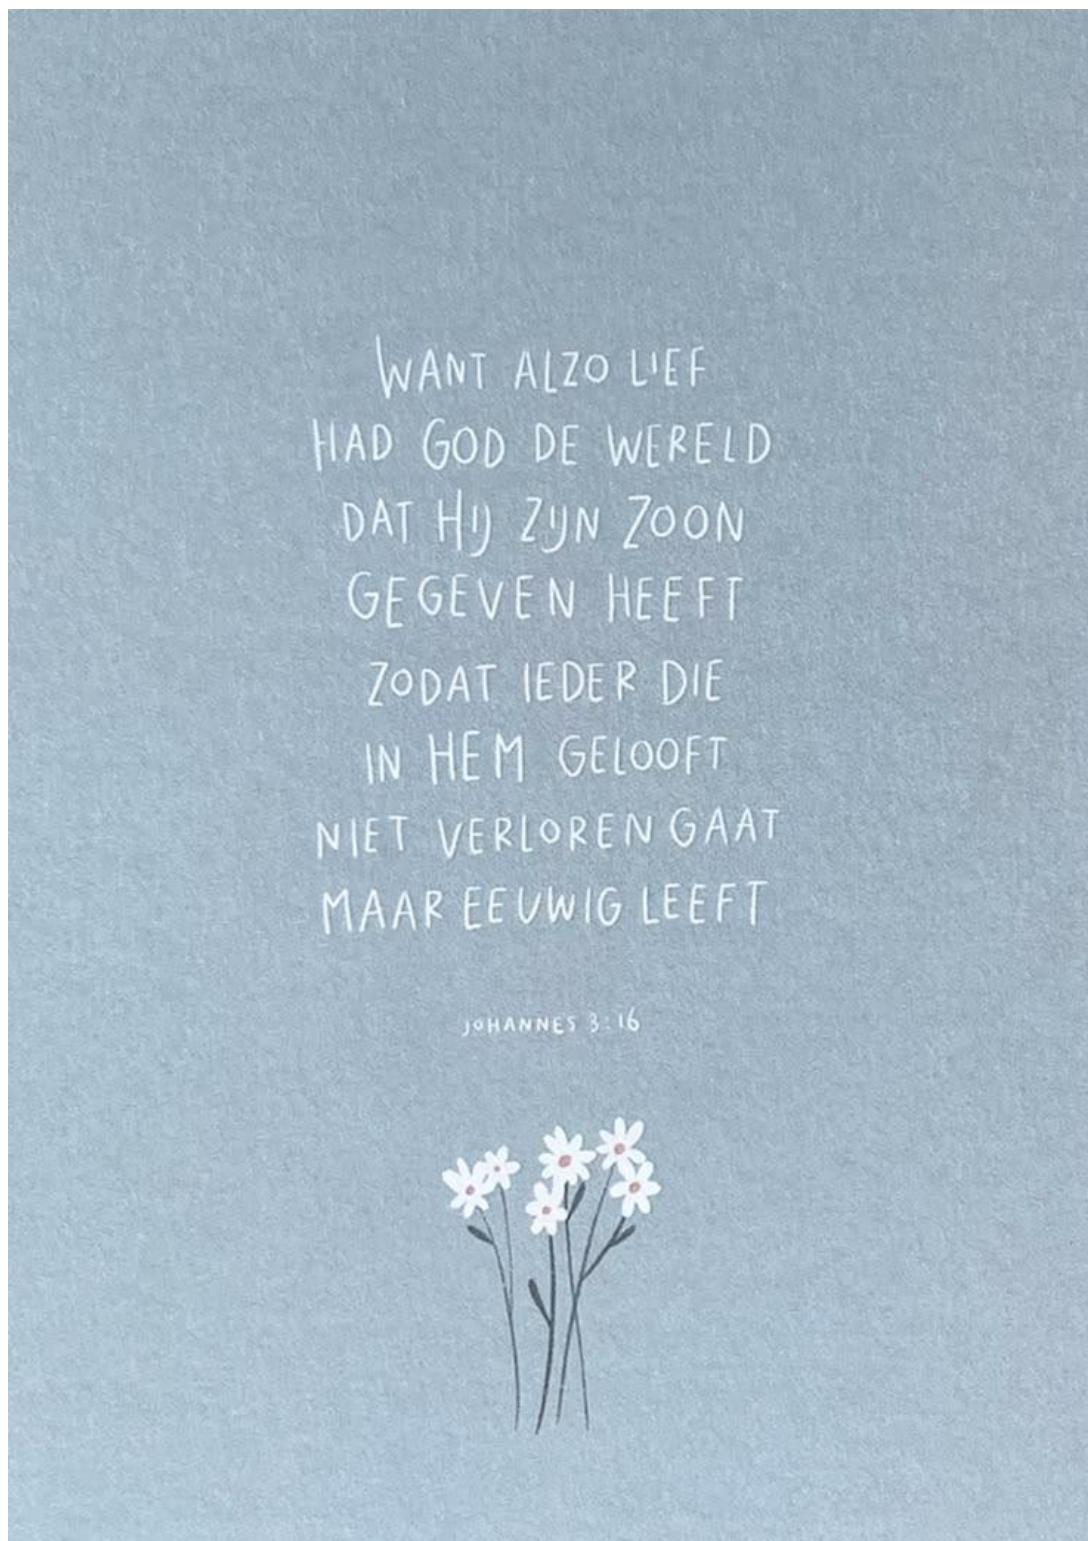 WANT ALZO LIEF
HAD GOD DE WERELD
DAT HIJ ZIJN ZOON
GEGEVEN HEEFT
ZODAT IEDER DIE
IN HEM GELOOFT
NIET VERLOREN GAAT
MAAR EEUWIG LEEFT
JOHANNES 3:16